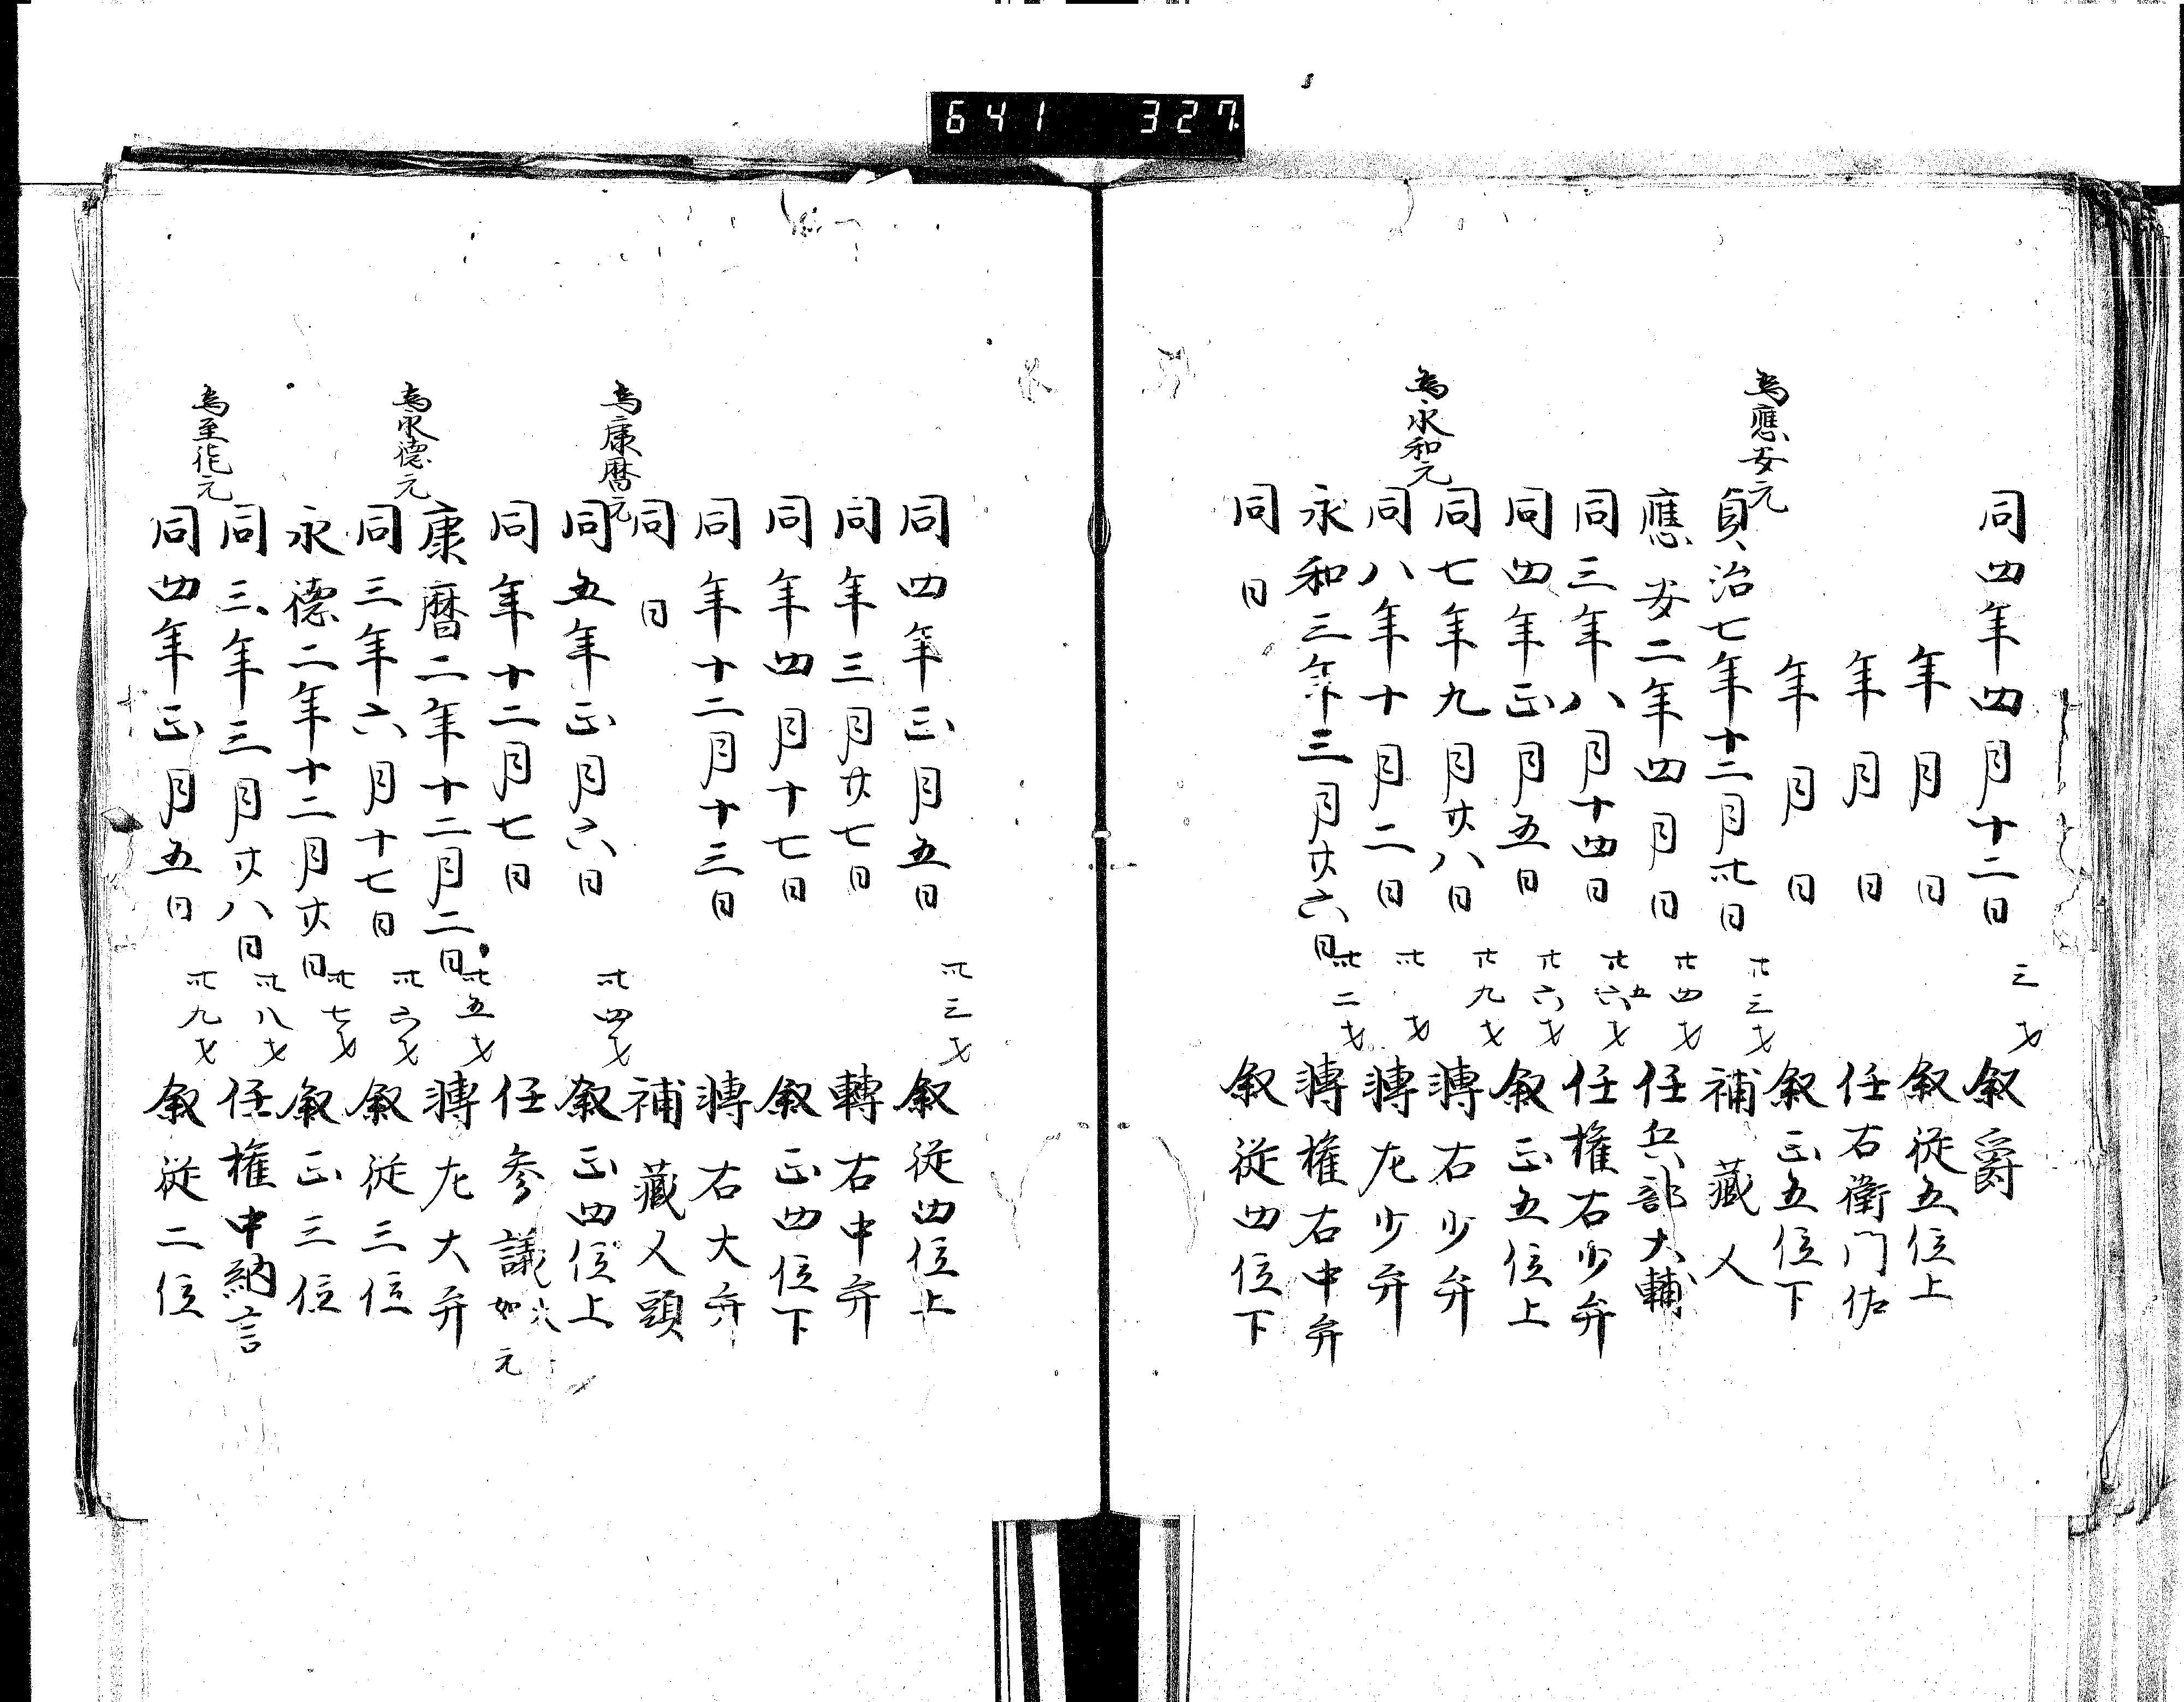 641 327
同四年四月十二日 三才 叙爵
年月日 叙従五位上
年月日 任右衛門佐
年月日 叙正五位下
為應安元
貞治七年十二月卅日 廿三才 補藏人
應安二年四月日 廿四才 任兵部大輔
同三年八月十四日 廿五才 任権右少弁
同四年正月五日 廿六才 叙正五位上
同七年九月廿八日 廿九才 轉右少弁
為永和元
同八年十月二日 卅才 轉左少弁
永和三年三月廿六日 卅二才 轉権右中弁
同日 叙従四位下
同四年正月五日 卅三才 叙従四位上
同年三月廿七日 轉右中弁
同年四月十七日 叙正四位下
同年十二月十三日 轉右大弁
同日 補藏人頭
為康暦元
同五年正月六日 卅四才 叙正四位上
同年十二月七日 任参議 大如元
康暦二年十二月二日 卅五才 轉左大弁
為永德元
同三年六月十七日 卅六才 叙従三位
永德二年十二月廿日 卅七才 叙正三位
同三年三月廿八日 卅八才 任権中納言
為至德元
同四年正月五日 卅九才 叙従二位